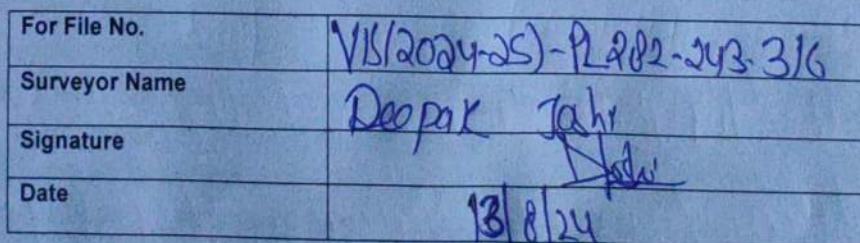 For File No. VIS(2024-25)-PL282-243-316
Surveyor Name Deepak Joshi
Signature
Date 13/8/24